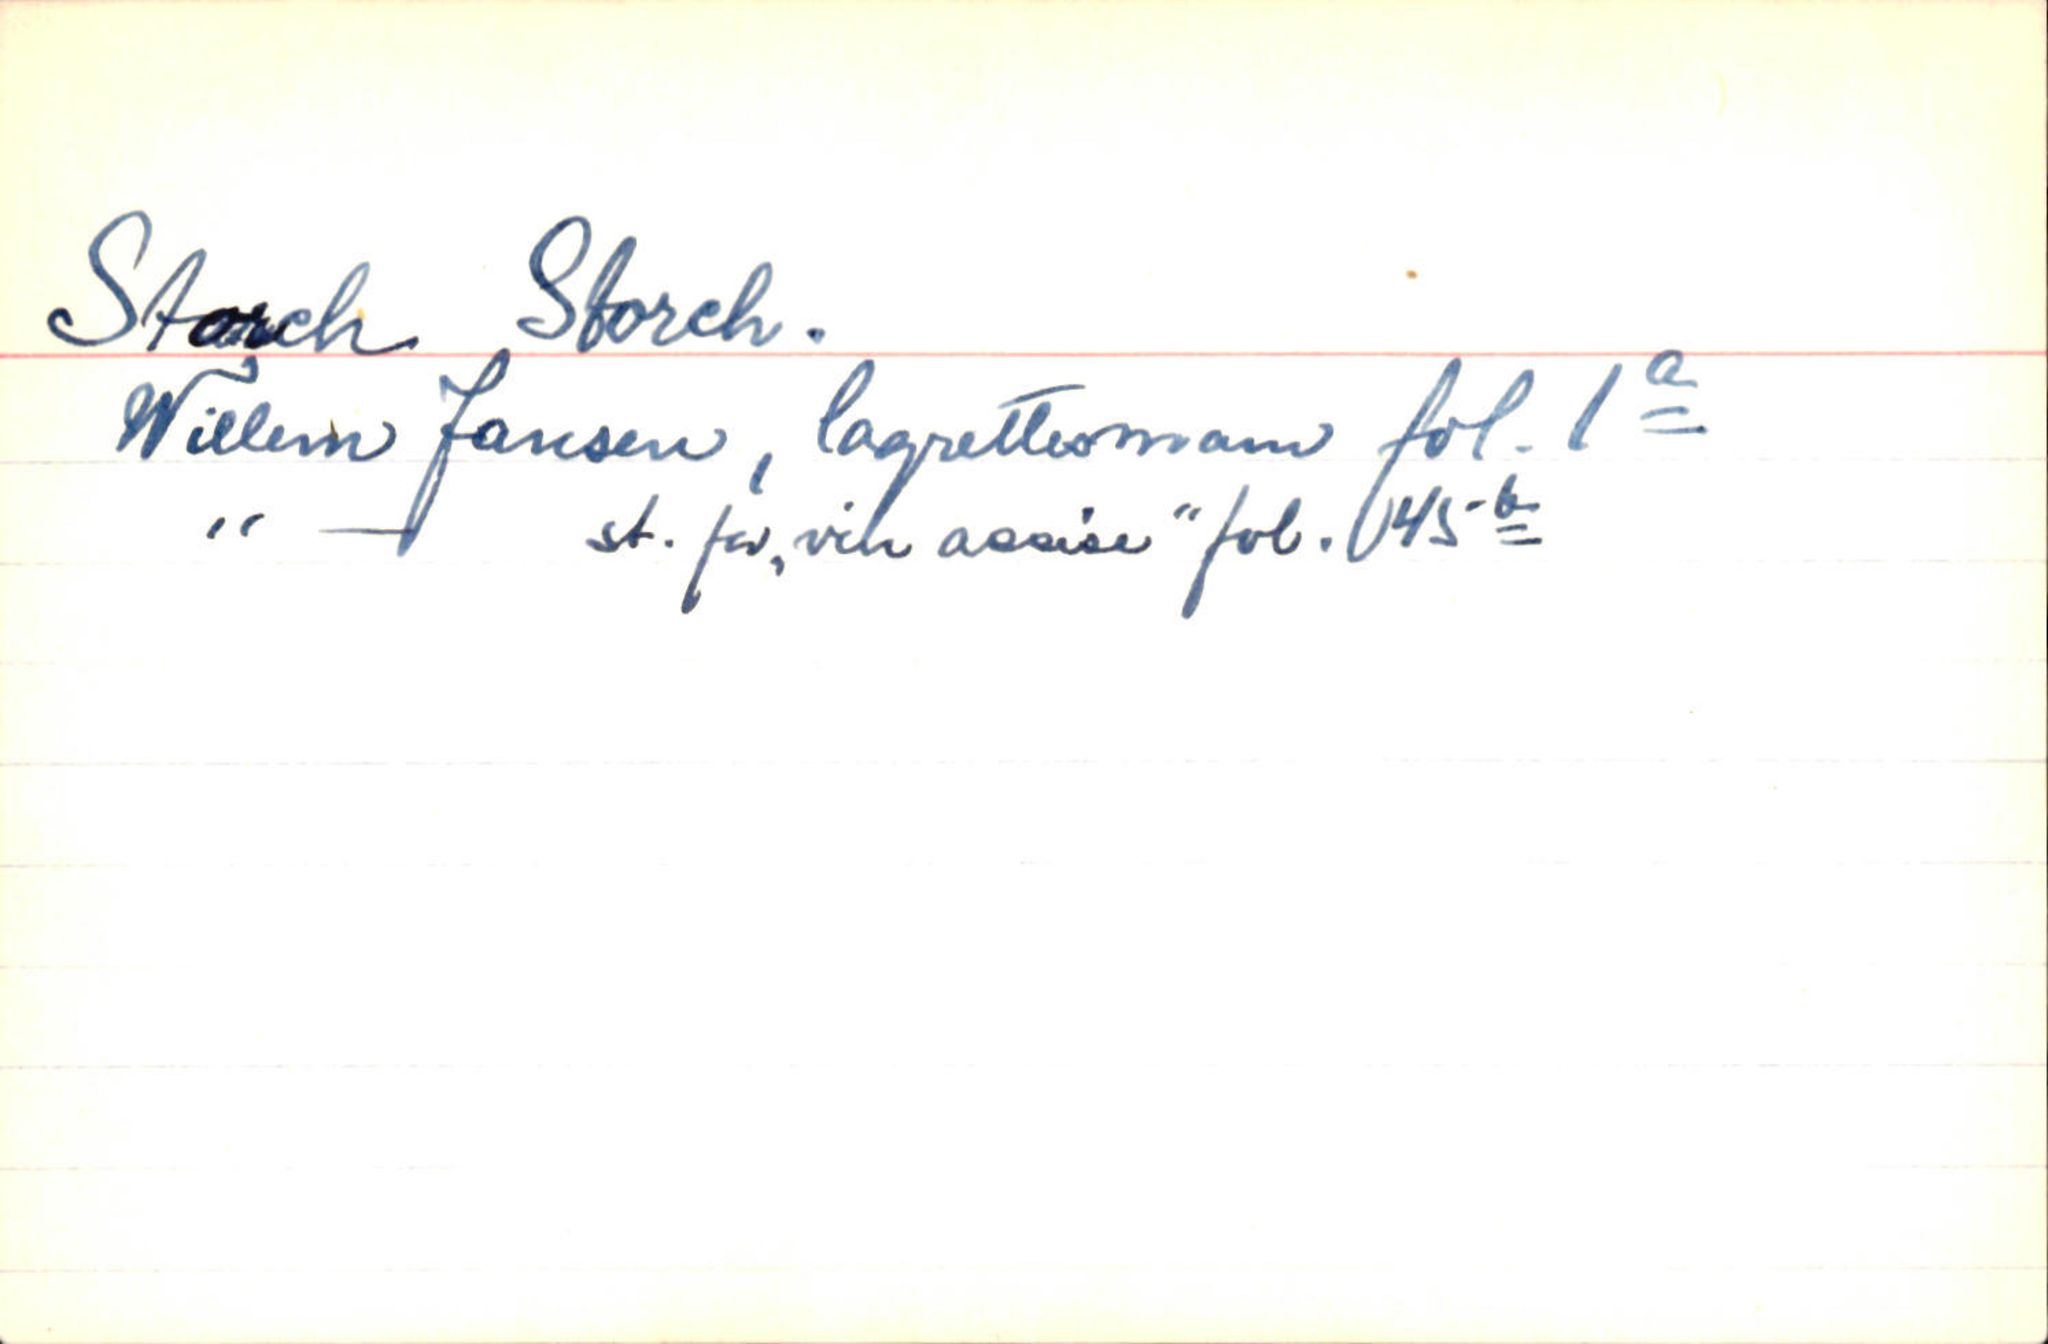 Storch. Storch.
Willem Jansen, lagrettesmann fol. 1 a
" — st. for „vin assise" fol. 145 b